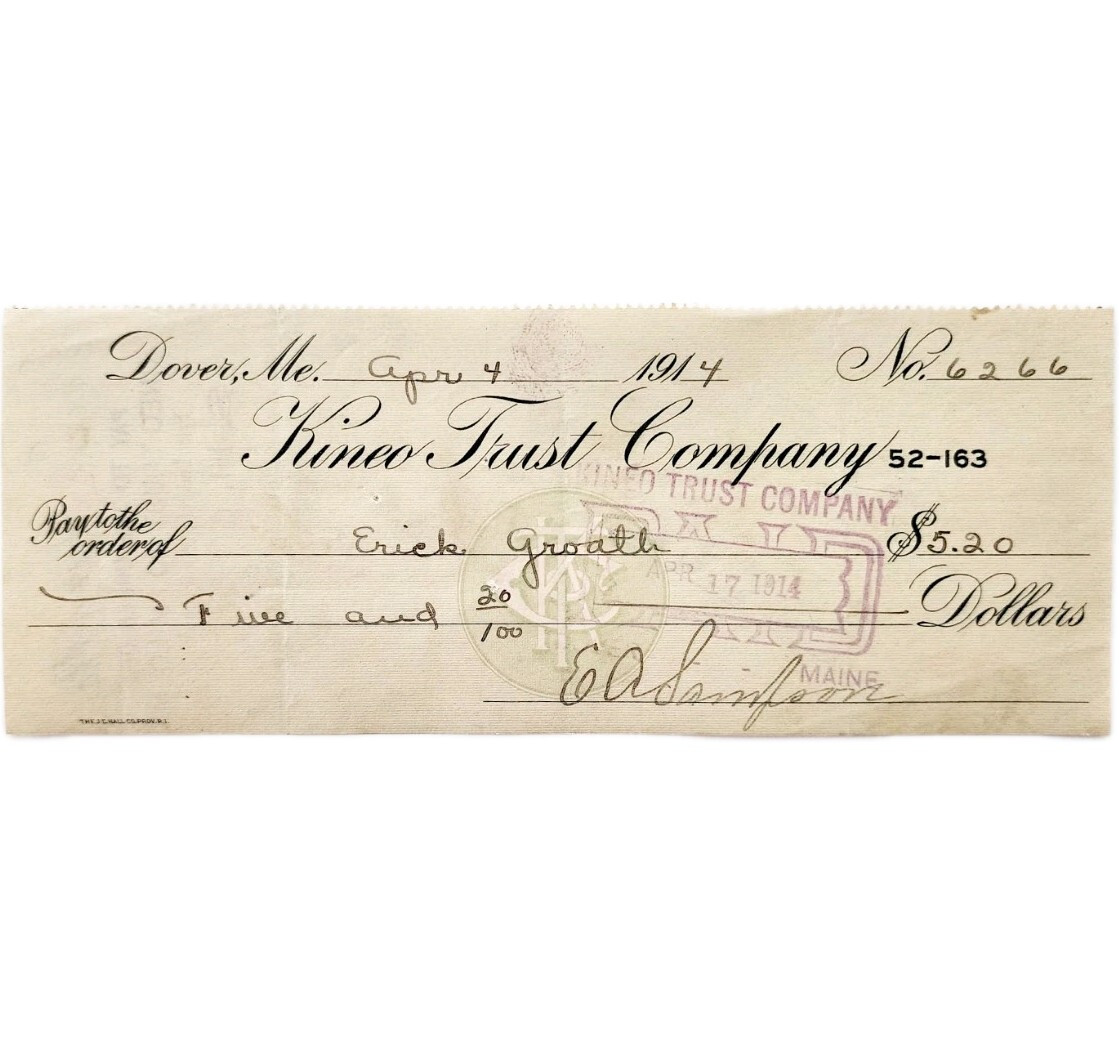 Dover, Me. Apr 4 1914 No. 6266
Kineo Trust Company 52-163
KINEO TRUST COMPANY
Pay to the order of Erick Groath $5.20
PAID
APR 17 1914
Five and 20/100 Dollars
MAINE
E A Sampson
THE J.C. HALL CO. PROV. R.I.